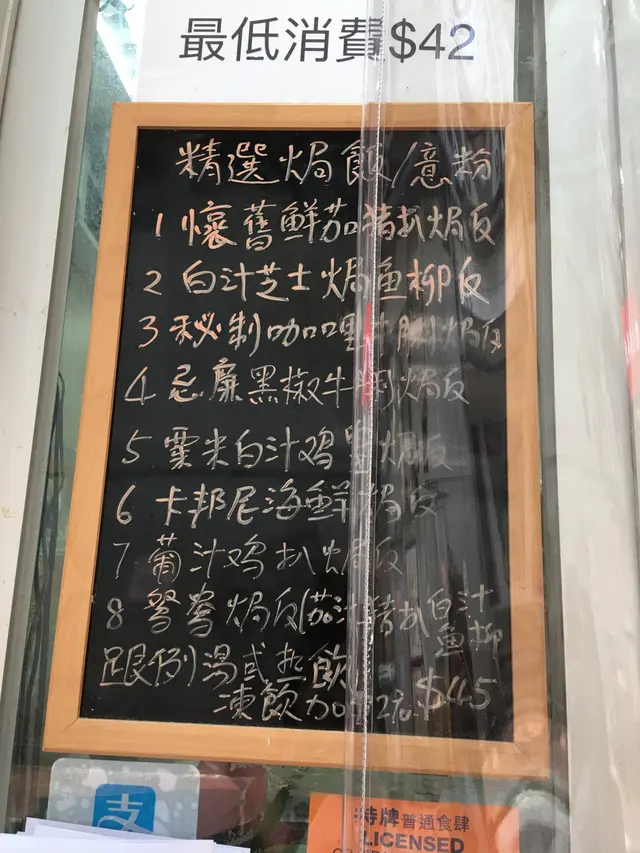 最低消費$42
精選焗飯/意粉
1 懷舊鮮茄猪扒焗反
2 白汁芝士焗魚柳反
3 秘制咖喱牛腩焗反
4 忌廉黑椒牛焗反
5 粟米白汁鸡焗反
6 卡邦尼海鮮焗反
7 葡汁鸡扒焗反
8 鴛鴦焗反(茄汁猪扒白汁魚柳
跟例湯或热飲 $45
凍飲加2元
支
持牌普通食肆
LICENSED